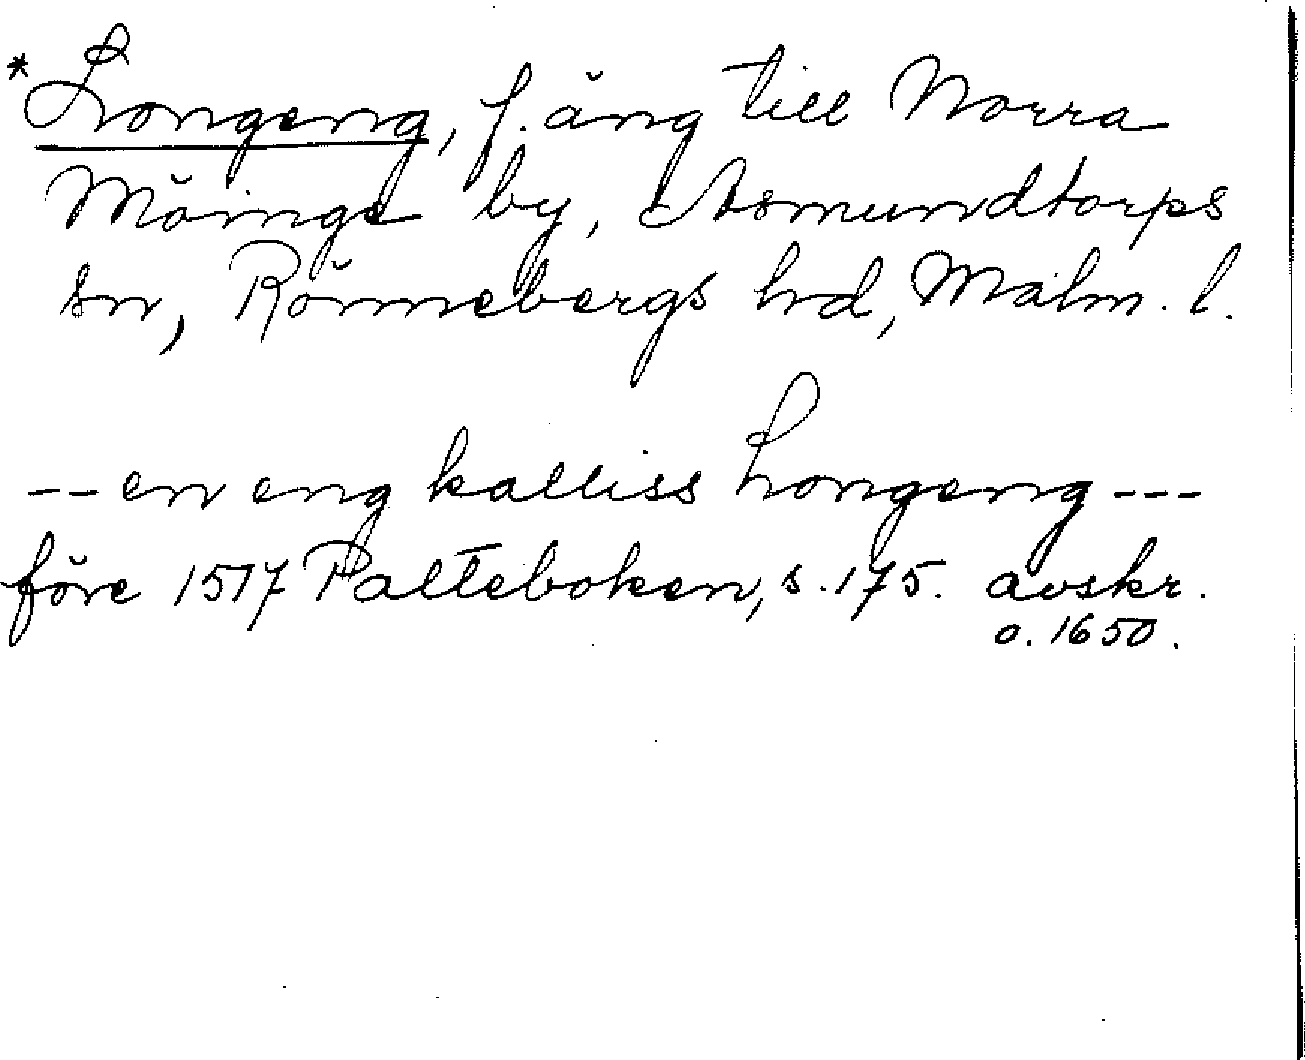 *Longeng, f. äng till Norra
Möinge by, Asmundtorps
sn, Rönnebergs hd, Malm. l.
-- en eng kalliss Longeng ---
före 1517 Palteboken, s. 175. avskr.
o. 1650.